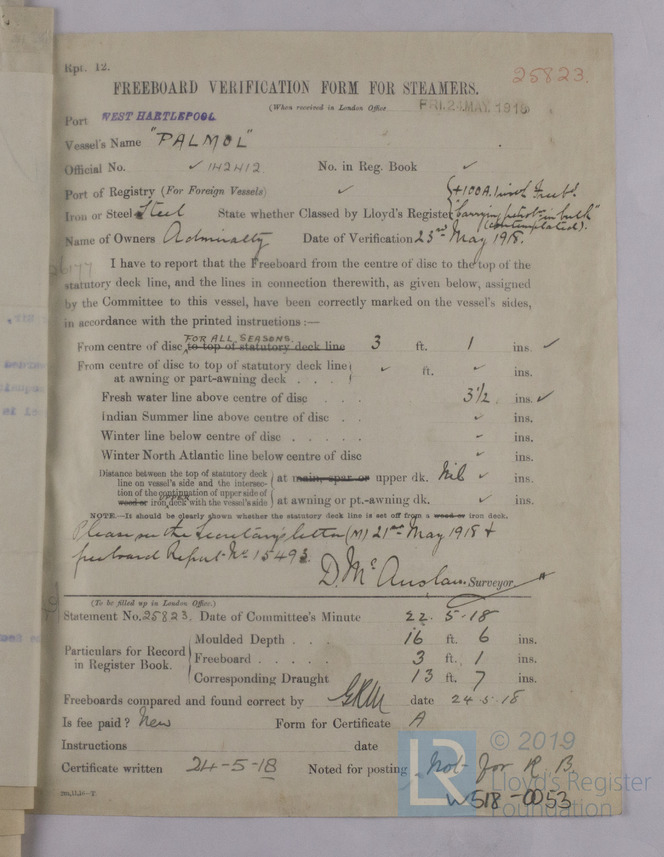 Rpt. 12.
25823.
FREEBOARD VERIFICATION FORM FOR STEAMERS.
(When received in London Office FRI. 24 MAY. 1918
Port WEST HARTLEPOOL
Vessel's Name "PALMOL"
Official No. ✓ 142412. No. in Reg. Book ✓
Port of Registry (For Foreign Vessels) ✓
Iron or Steel Steel State whether Classed by Lloyd's Register {+100A.1 with Freebd "Carrying petrol in bulk" (contemplated).
Name of Owners Admiralty Date of Verification 23rd May 1918.
I have to report that the Freeboard from the centre of disc to the top of the
statutory deck line, and the lines in connection therewith, as given below, assigned
by the Committee to this vessel, have been correctly marked on the vessel's sides,
in accordance with the printed instructions :—
FOR ALL SEASONS.
From centre of disc to top of statutory deck line 3 ft. 1 ins. ✓
From centre of disc to top of statutory deck line
at awning or part-awning deck . . . . ✓ ft. ✓ ins.
Fresh water line above centre of disc . . . 3½ ins. ✓
Indian Summer line above centre of disc . . ✓ ins.
Winter line below centre of disc . . . . . ✓ ins.
Winter North Atlantic line below centre of disc ✓ ins.
Distance between the top of statutory deck
line on vessel's side and the intersec-
tion of the continuation of upper side of
UPPER
wood or iron deck with the vessel's side
at main, spar or upper dk. Nil ✓ ins.
at awning or pt.-awning dk. ✓ ins.
NOTE.—It should be clearly shown whether the statutory deck line is set off from a wood or iron deck.
Please see the Secretary's letter (M) 21st May 1918 +
freeboard Report No 15493.
D. Mc Auslan. Surveyor
(To be filled up in London Office.)
Statement No. 25823. Date of Committee's Minute 22. 5. 18
Particulars for Record
in Register Book.
Moulded Depth . . . 16 ft. 6 ins.
Freeboard . . . . . 3 ft. 1 ins.
Corresponding Draught 13 ft. 7 ins.
Freeboards compared and found correct by date 24.5.18
Is fee paid? New Form for Certificate A
Instructions date
Certificate written 24-5-18 Noted for posting Not for R. B.
W518-0053
© 2019
Lloyd's Register
Foundation
LR